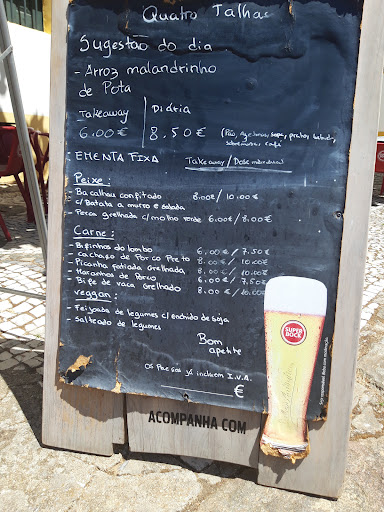 Quatro Talhas
Sugestão do dia
- Arroz malandrinho
de Pota
Takeaway | Diária
6.00€ | 8.50€ (Pão, azeitonas, sopa, prato, bebida,
sobremesa, café
EMENTA FIXA Takeaway / Dose individual
Peixe:
- Bacalhau confitado 8.00€ / 10.00€
c/ Batata a murro e salada
- Perca grelhada c/ molho verde 6.00€ / 8.00€
Carne:
- Bifinhos do lombo 6.00€ / 7.50€
- Cachaço de Porco Preto 8.00€ / 10.00€
- Picanha fatiada Grelhada 8.00€ / 10.00€
- Maranhos de Porco 6.00€ / 7.50€
- Bife de vaca Grelhado 8.00€ / 10.00€
veggan:
- Feijoada de legumes c/ enchido de soja
- Salteado de legumes
Bom
apetite
OS Preços já incluem I.V.A.
€
SUPER
BOCK
ACOMPANHA COM